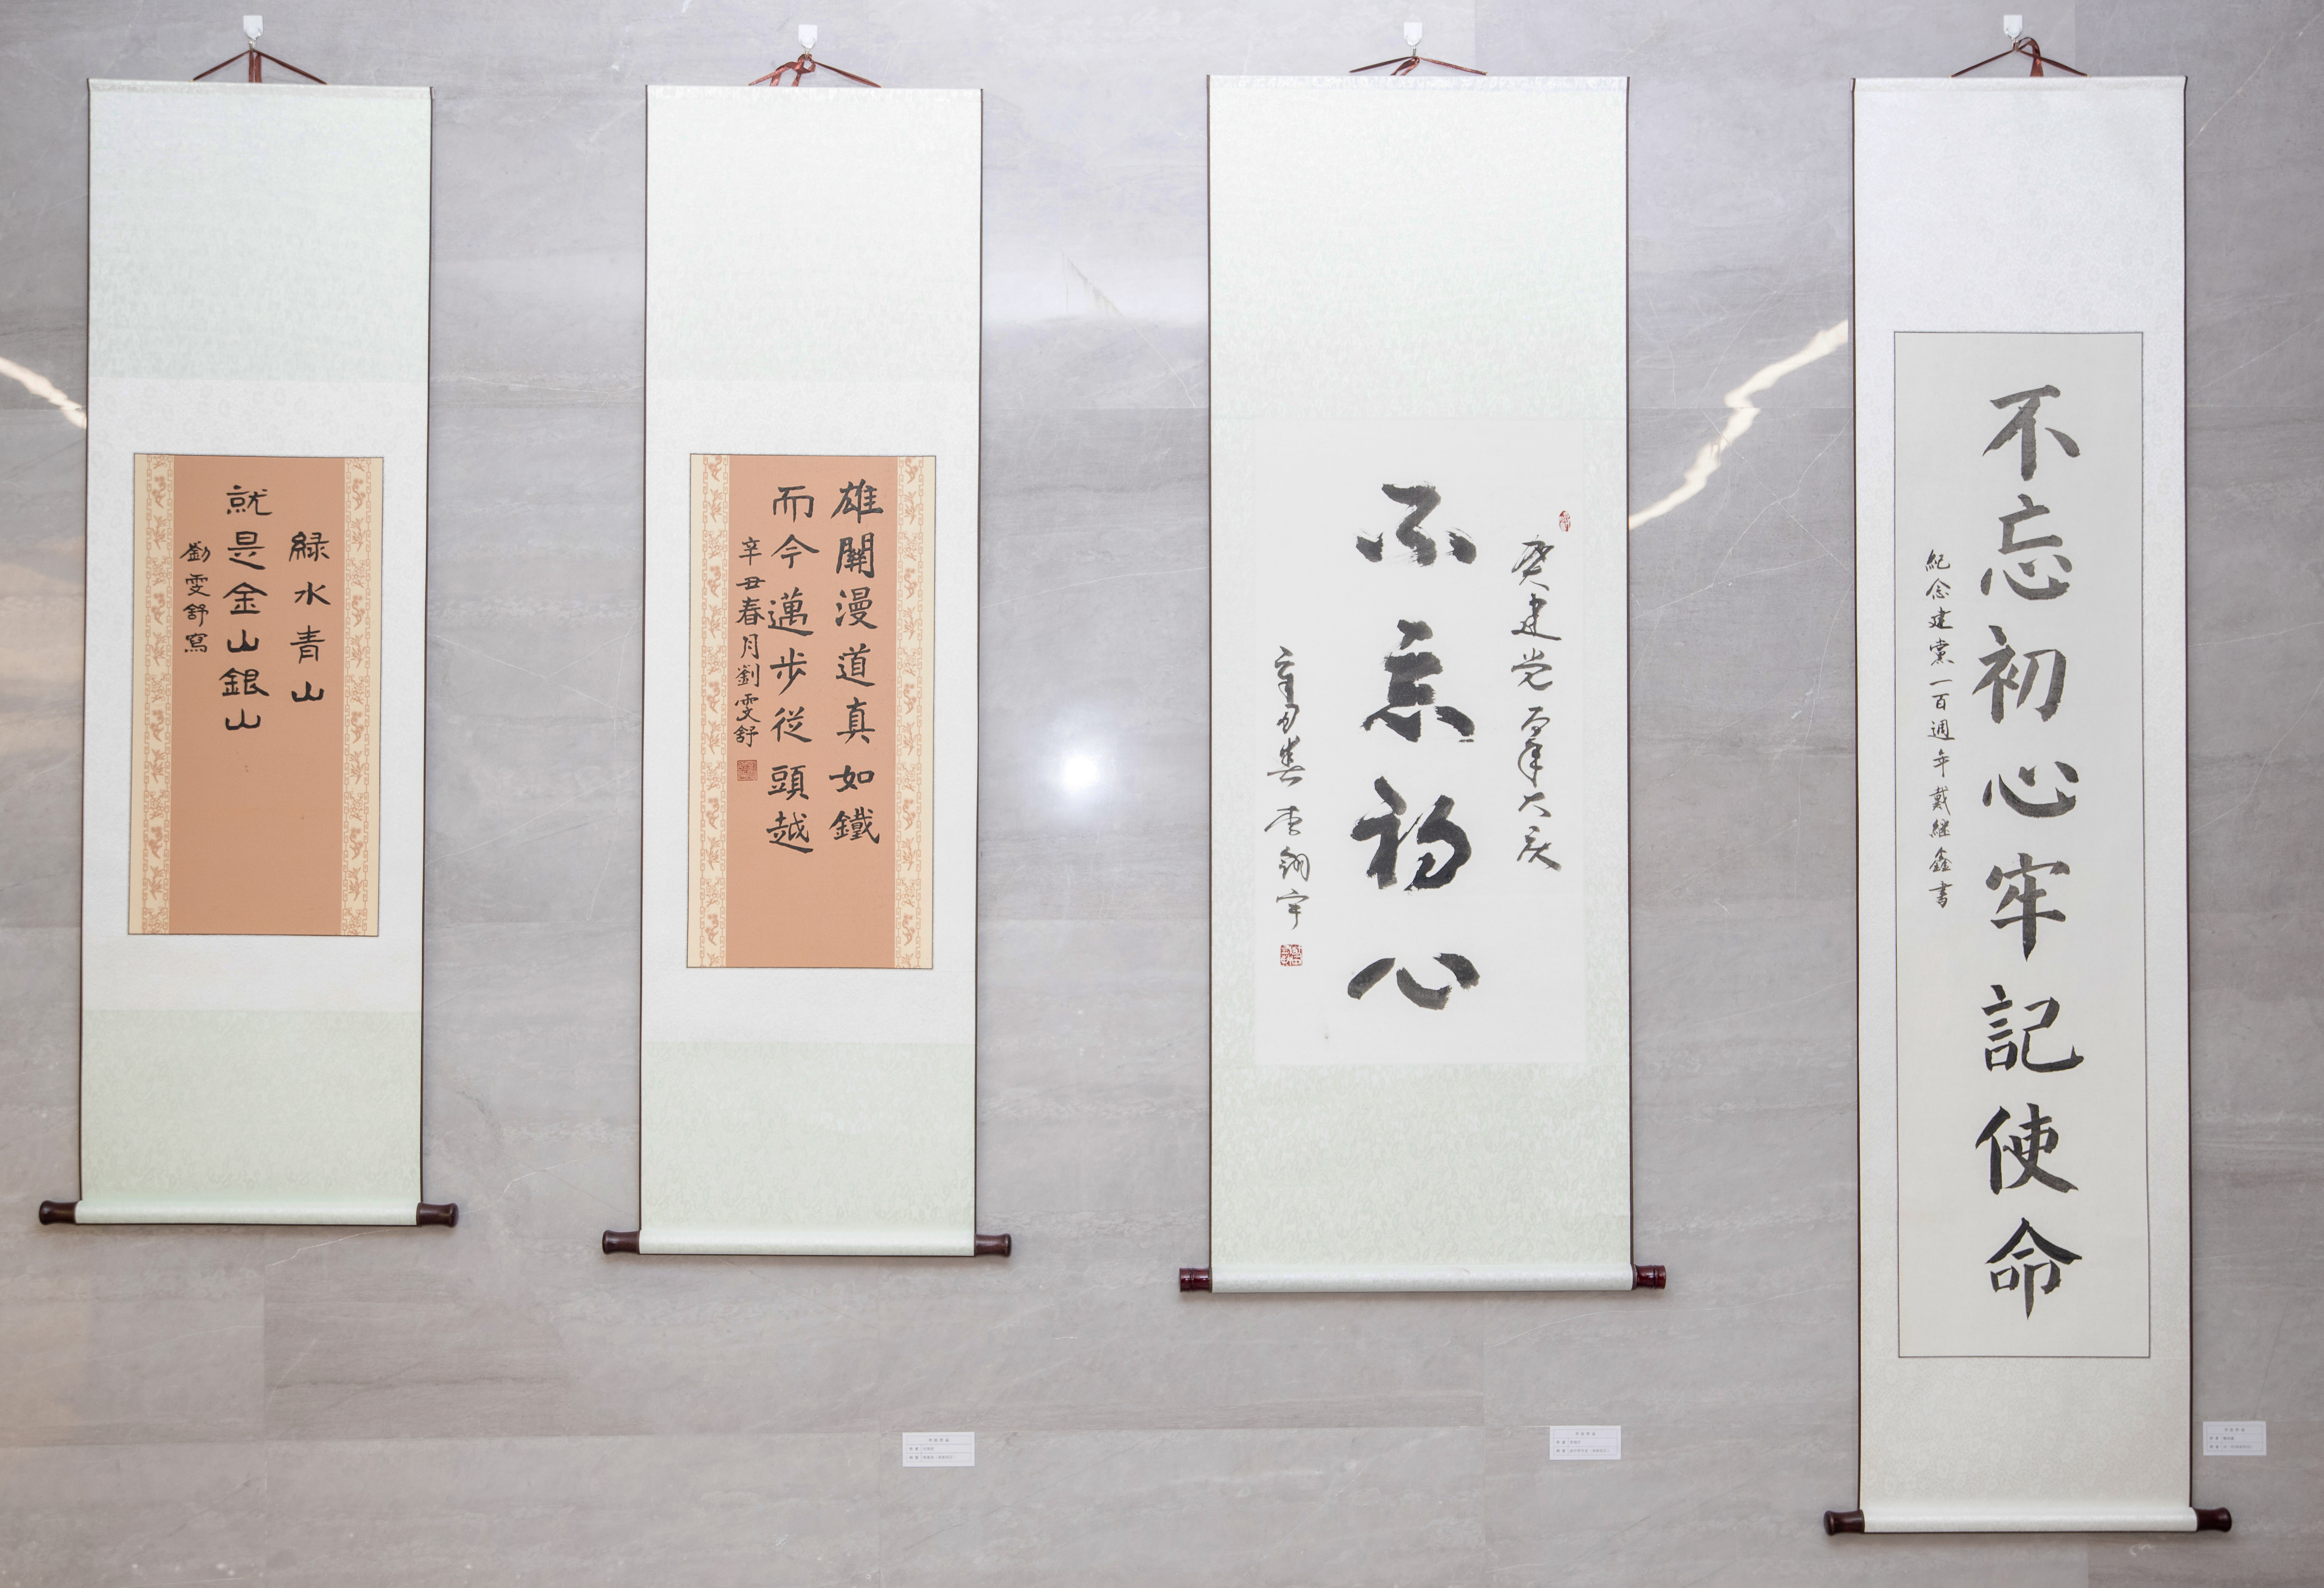 緑水青山
就是金山銀山
劉雯舒寫
雄關漫道真如鐵
而今邁步從頭越
辛丑春月劉雯舒
建党百年大庆
不忘初心
辛丑春
不忘初心牢記使命
紀念建黨一百週年戴継鑫書